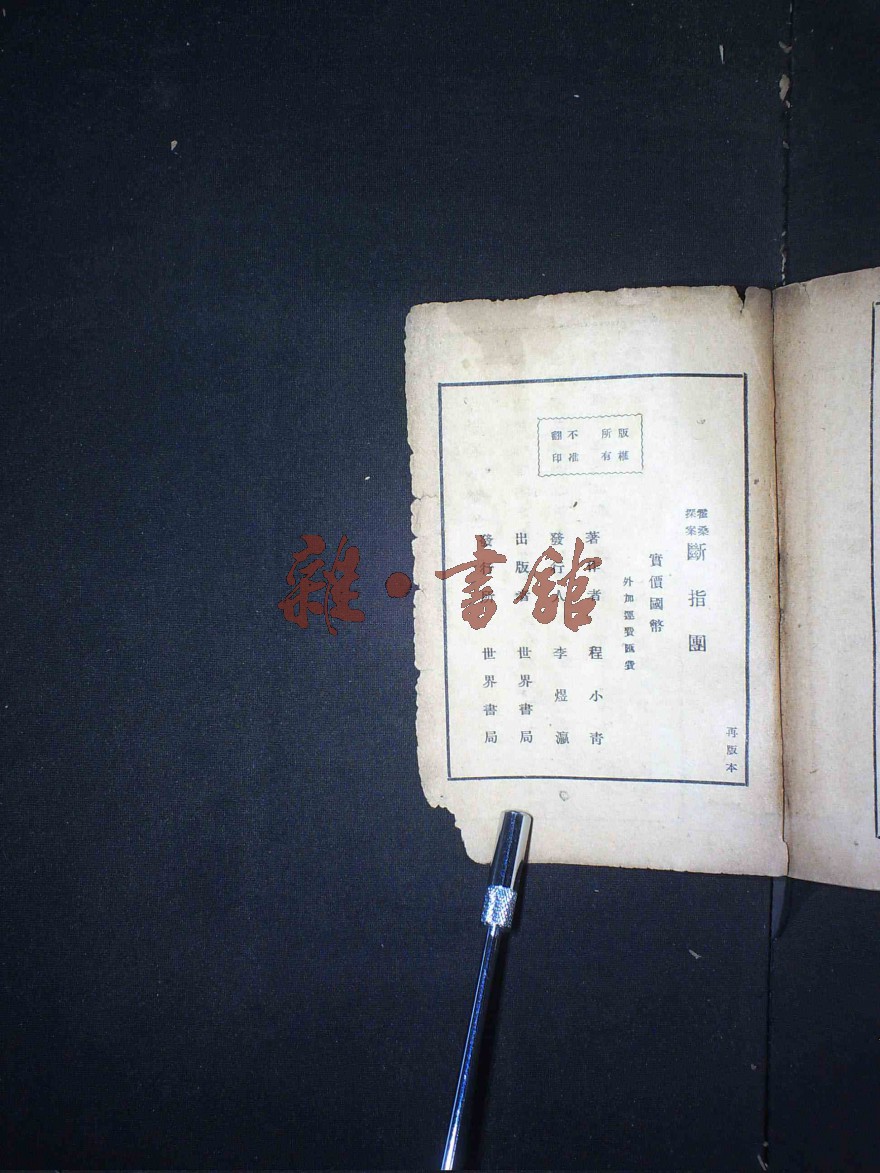 再版本
霍桑
探案
斷指團
實價國幣
外加運費匯費
版權
所有
不准
翻印
著作者 程小青
發行人 李煜瀛
出版者 世界書局
發行所 世界書局
雜·書館